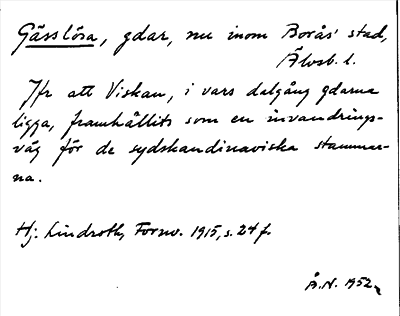 Gässlösa, gdar, nu inom Borås' stad,
Älvsb. l.
Jfr att Viskan, i vars dalgång gdarna
ligga, framhållits som en invandrings-
väg för de sydskandinaviska stammar-
na.
Hj. Lindroth, Fornv. 1915, s. 24 f.
Å.N. 1952